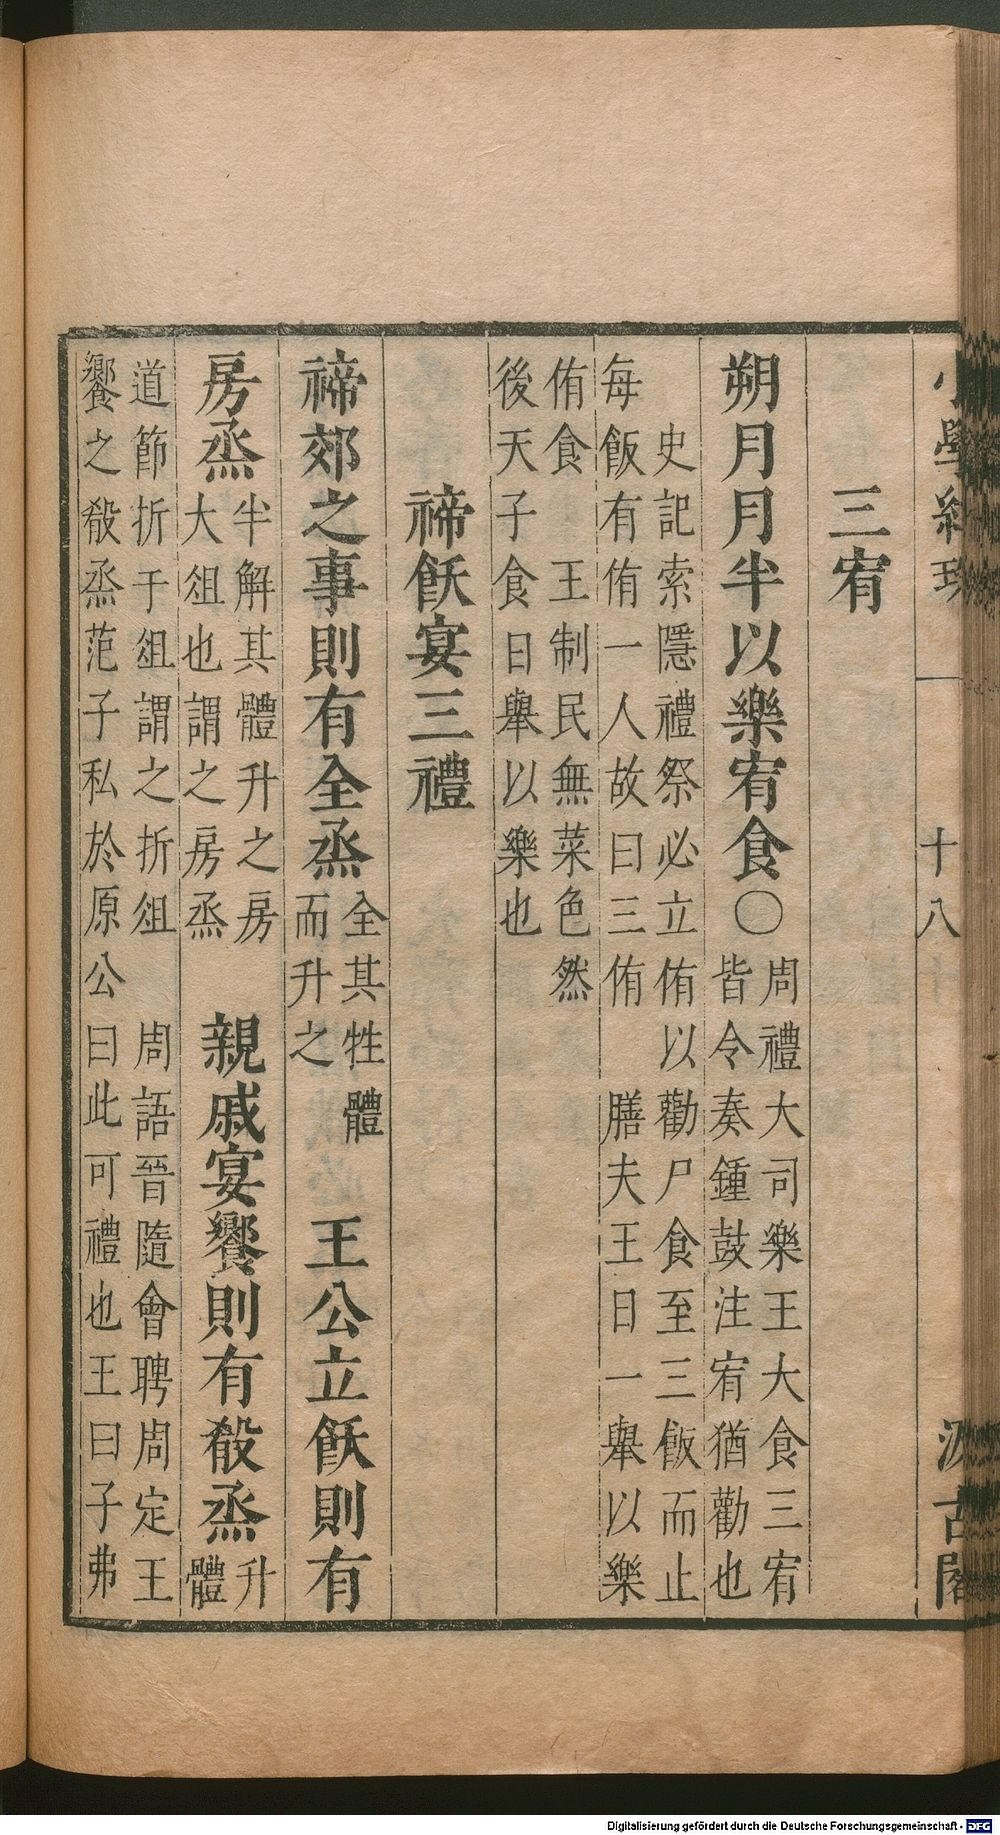 小學紺珠 十八 汲古閣
三宥
朔月月半以樂宥食〇周禮大司樂王大食三宥
皆令奏鍾鼓注宥猶勸也
史記索隱禮祭必立侑以勸尸食至三飯而止
每飯有侑一人故曰三侑 膳夫王日一舉以樂
侑食 王制民無菜色然
後天子食日舉以樂也
禘飫宴三禮
禘郊之事則有全烝全其牲體
而升之 王公立飫則有
房烝半解其體升之房
大俎也謂之房烝 親戚宴饗則有殽烝升
體
道節折于俎謂之折俎 周語晉隨會聘周定王
饗之殽烝范子私於原公曰此可禮也王曰子弗
Digitalisierung gefördert durch die Deutsche Forschungsgemeinschaft - DFG